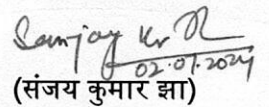 Sanjay Kr
02.01.2024
(संजय कुमार झा)